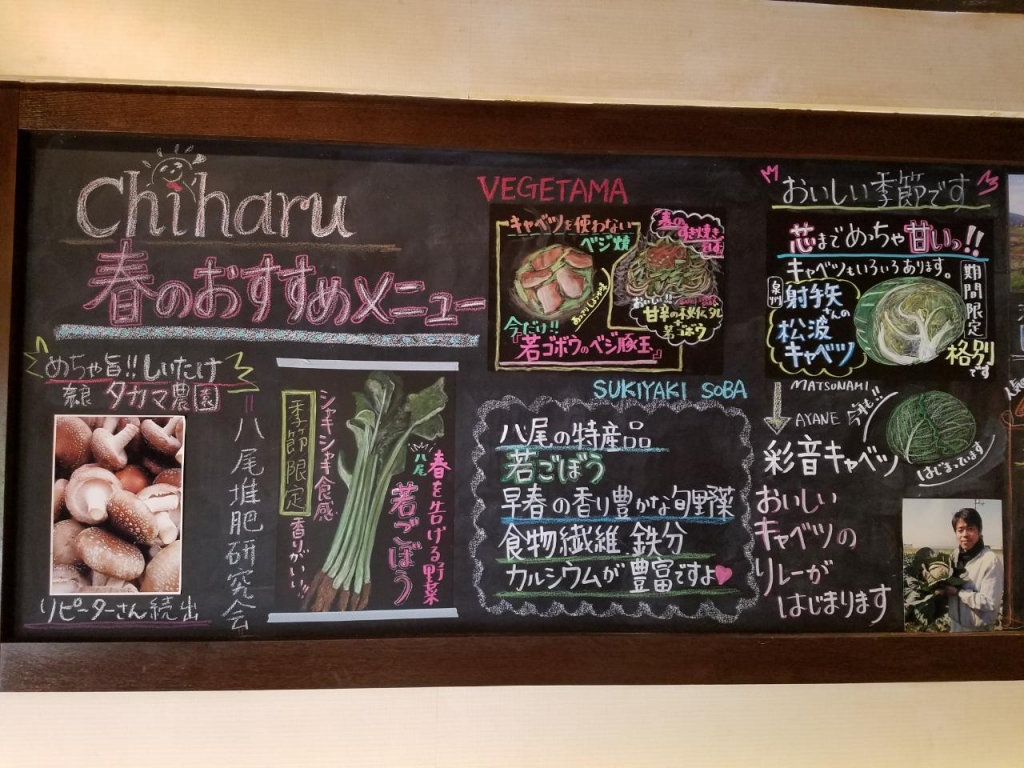 Chiharu
春のおすすめメニュー
めちゃ旨!!しいたけ
奈良 タカマ農園
リピーターさん続出
八尾堆肥研究会
季節限定
シャキシャキ食感
香りがいい!!
春を告げる野菜
八尾
若ごぼう
VEGETAMA
キャベツを使わない
ベジ焼
今だけ!!
『若ゴボウのベジ豚玉』
春の
すき焼き
そば
おいしい!!
甘辛の秘伝タレ
若ゴボウ
SUKIYAKI SOBA
八尾の特産品
若ごぼう
早春の香り豊かな旬野菜
食物繊維 鉄分
カルシウムが豊富ですよ
おいしい季節です
芯までめっちゃ甘いっ!!
キャベツもいろいろあります。
期間限定
泉州
射手矢
さんの
松波
キャベツ
格別
です
MATSUNAMI
AYANE 今年も!!
彩音キャベツ
はじまっています
おいしい
キャベツの
リレーが
はじまります